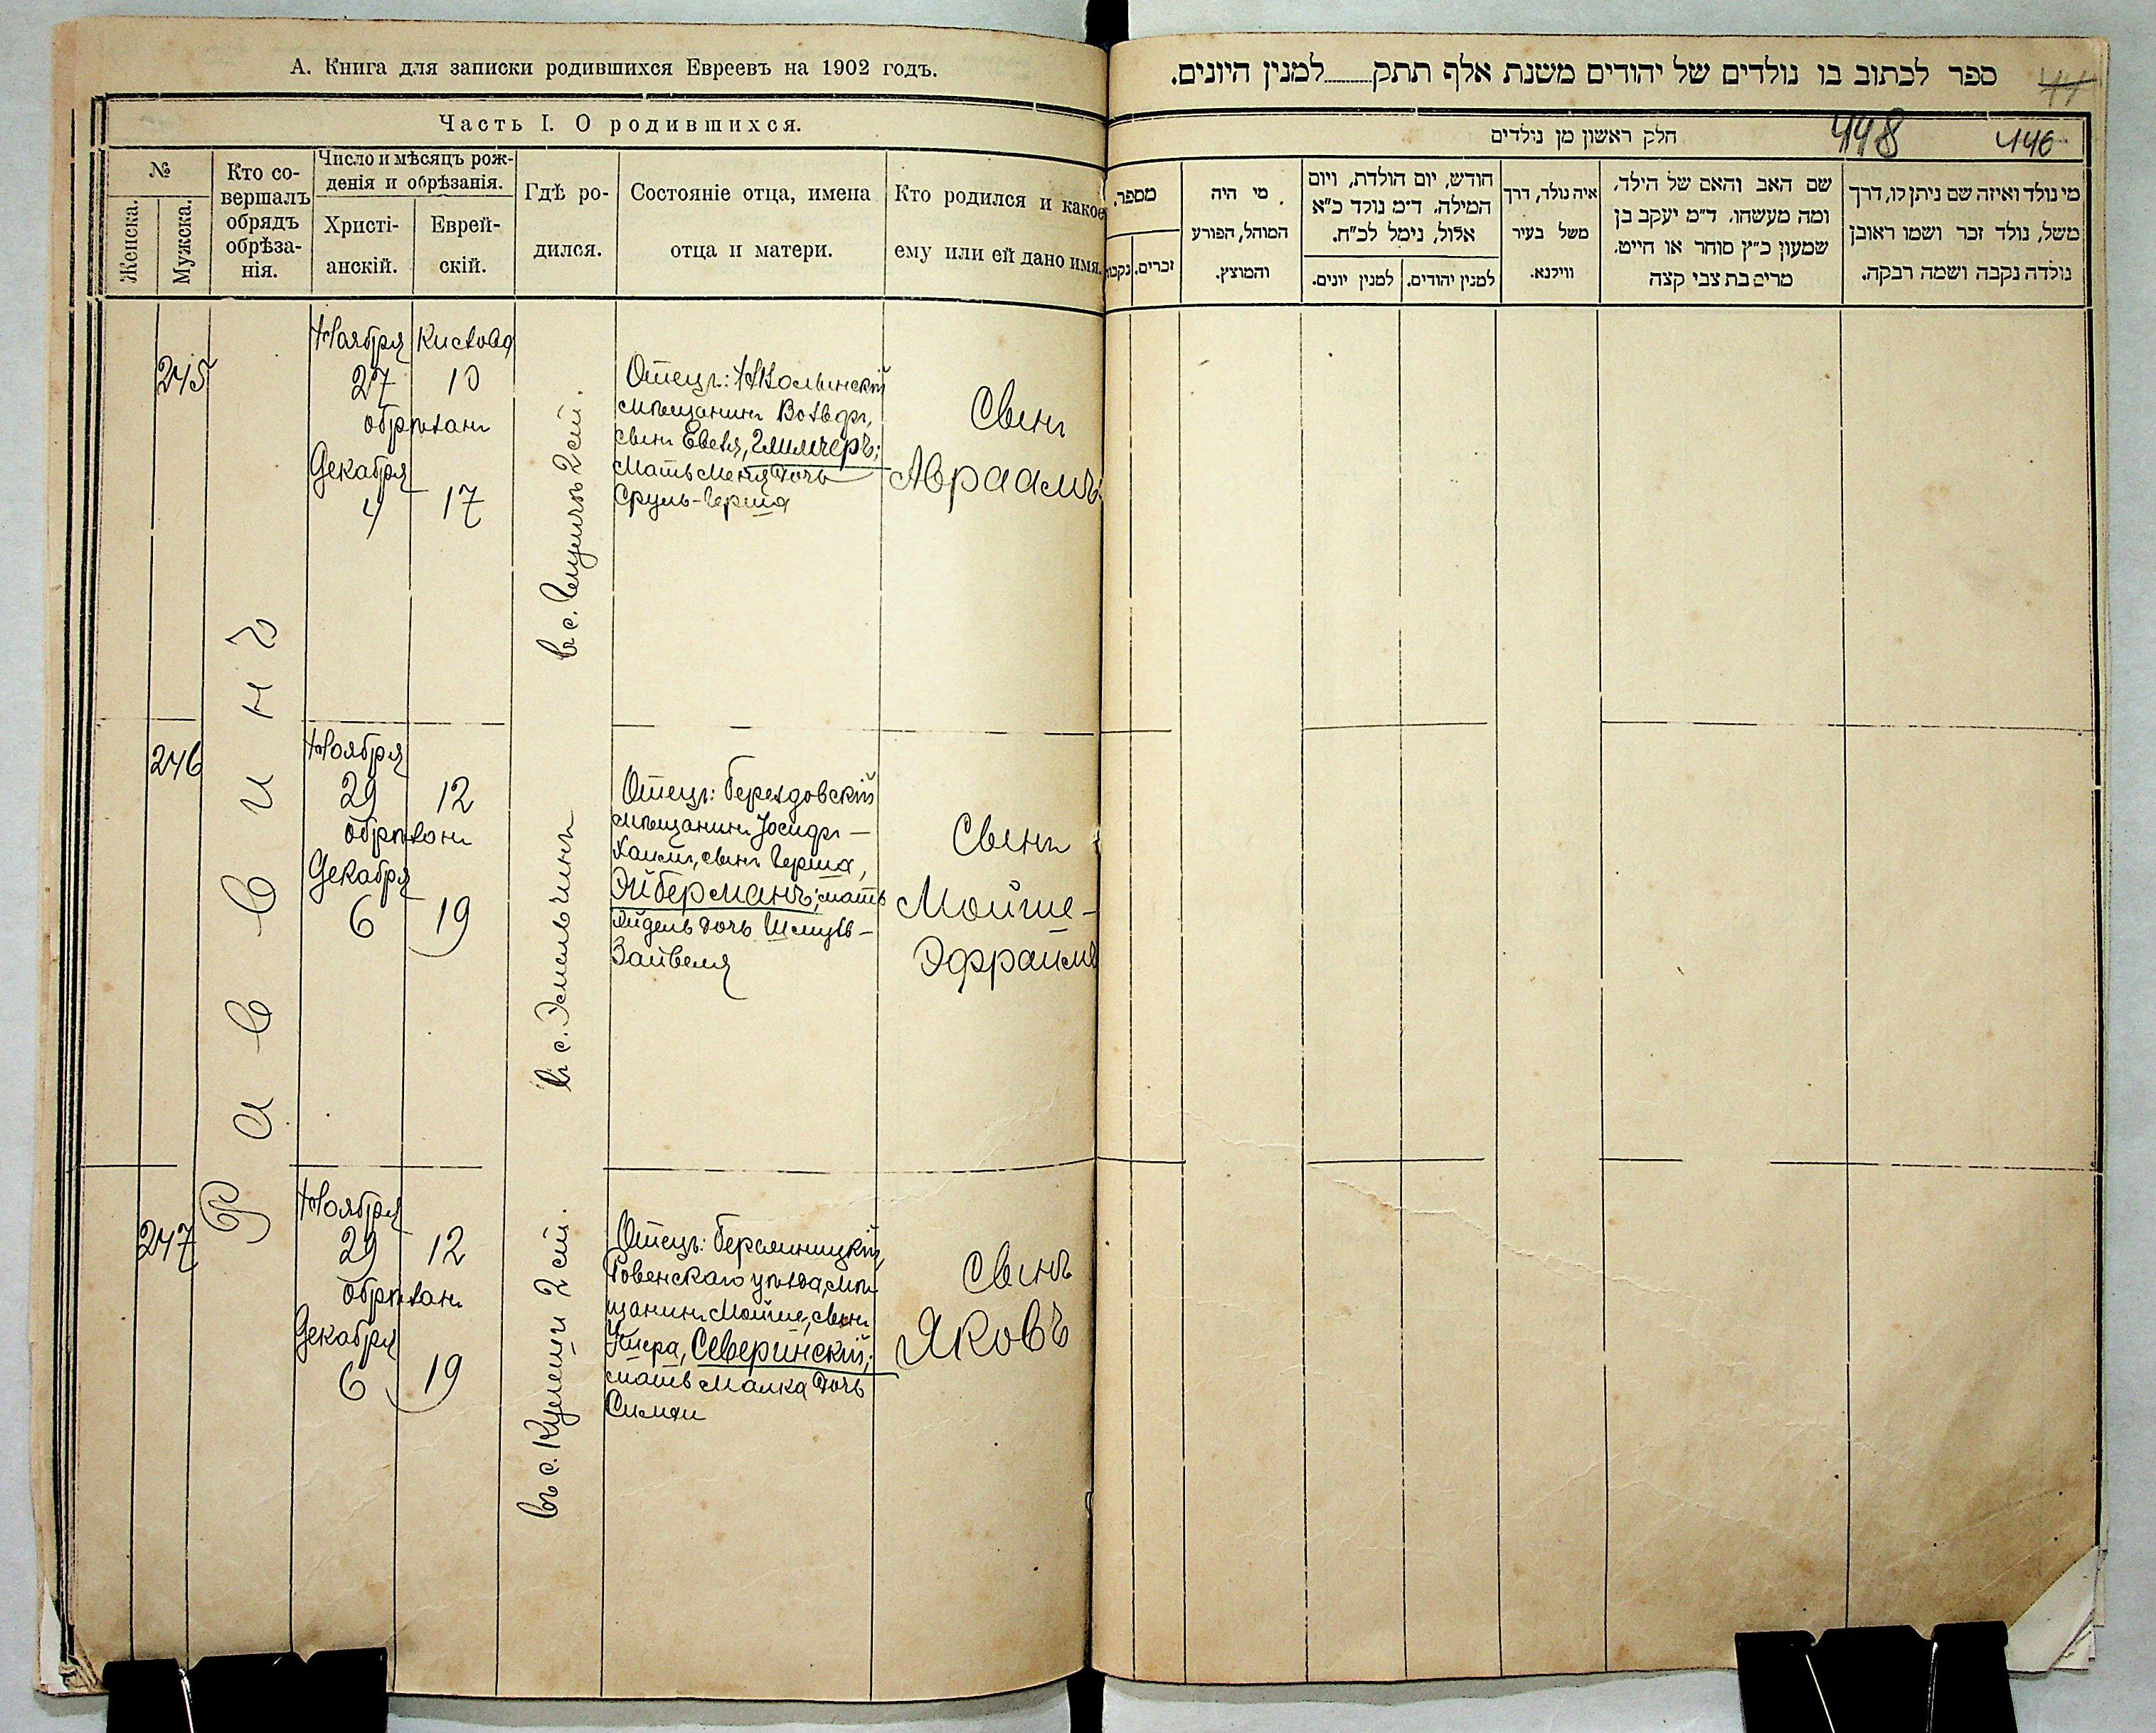 А. Книга для записки родившихся Евреевъ на 1902 годъ.
Часть I. О родившихся.
№
Женска.
Мужска.
Кто со-
вершалъ
обрядъ
обрѣза-
нія.
Число и мѣсяцъ рож-
денія и обрѣзанія.
Христі-
анскій.
Еврей-
скій.
Гдѣ ро-
дился.
Состояніе отца, имена
отца и матери.
Кто родился и какое
ему или ей дано имя.
Раввинъ
245
Ноября Кислова
27 10
обрѣзанъ
Декабря
4 17
въ с.
2 ст.
Отецъ:
мѣщанинъ
сынъ
Мать Меня дочь
Сруль-Герша
Сынъ
Авраамъ
246
Ноября
29 12
обрѣзанъ
Декабря
6 19
въ с. Эмельчинъ
Отецъ: Берездовскій
мѣщанинъ Іосифъ-
Хаимъ, сынъ Герша,
Эйберманъ; мать
дочь
Зайвеля
Сынъ
Мойше-
Эфраимъ
247
Ноября
29 12
обрѣзанъ
Декабря
6 19
въ с. Кулеши 2 ст.
Отецъ:
Ровенскаго уѣзда, мѣ-
щанинъ Мойше, сынъ
Северинскій;
мать Малка дочь
Симхи
Сынъ
Яковъ
ספר לכתוב בו נולדים של יהודים משנת אלף תתק למנין היונים.
44
חלק ראשון מן נולדים
448 446
מספר.
זכרים. נקבות
מי היה
המוהל, הפורע
והמוצץ.
חודש, יום הולדת, ויום
המילה. ד״מ נולד כ״א
אלול, נימל לכ״ח.
למנין יונים.
למנין יהודים.
איה נולד, דרך
משל בעיר
ווילנא.
שם האב והאם של הילד,
ומה מעשהו. ד״מ יעקב בן
שמעון כ״ץ סוחר או חייט.
מרים בת צבי קצה
מי נולד ואיזה שם ניתן לו, דרך
משל, נולד זכר ושמו ראובן
נולדה נקבה ושמה רבקה.